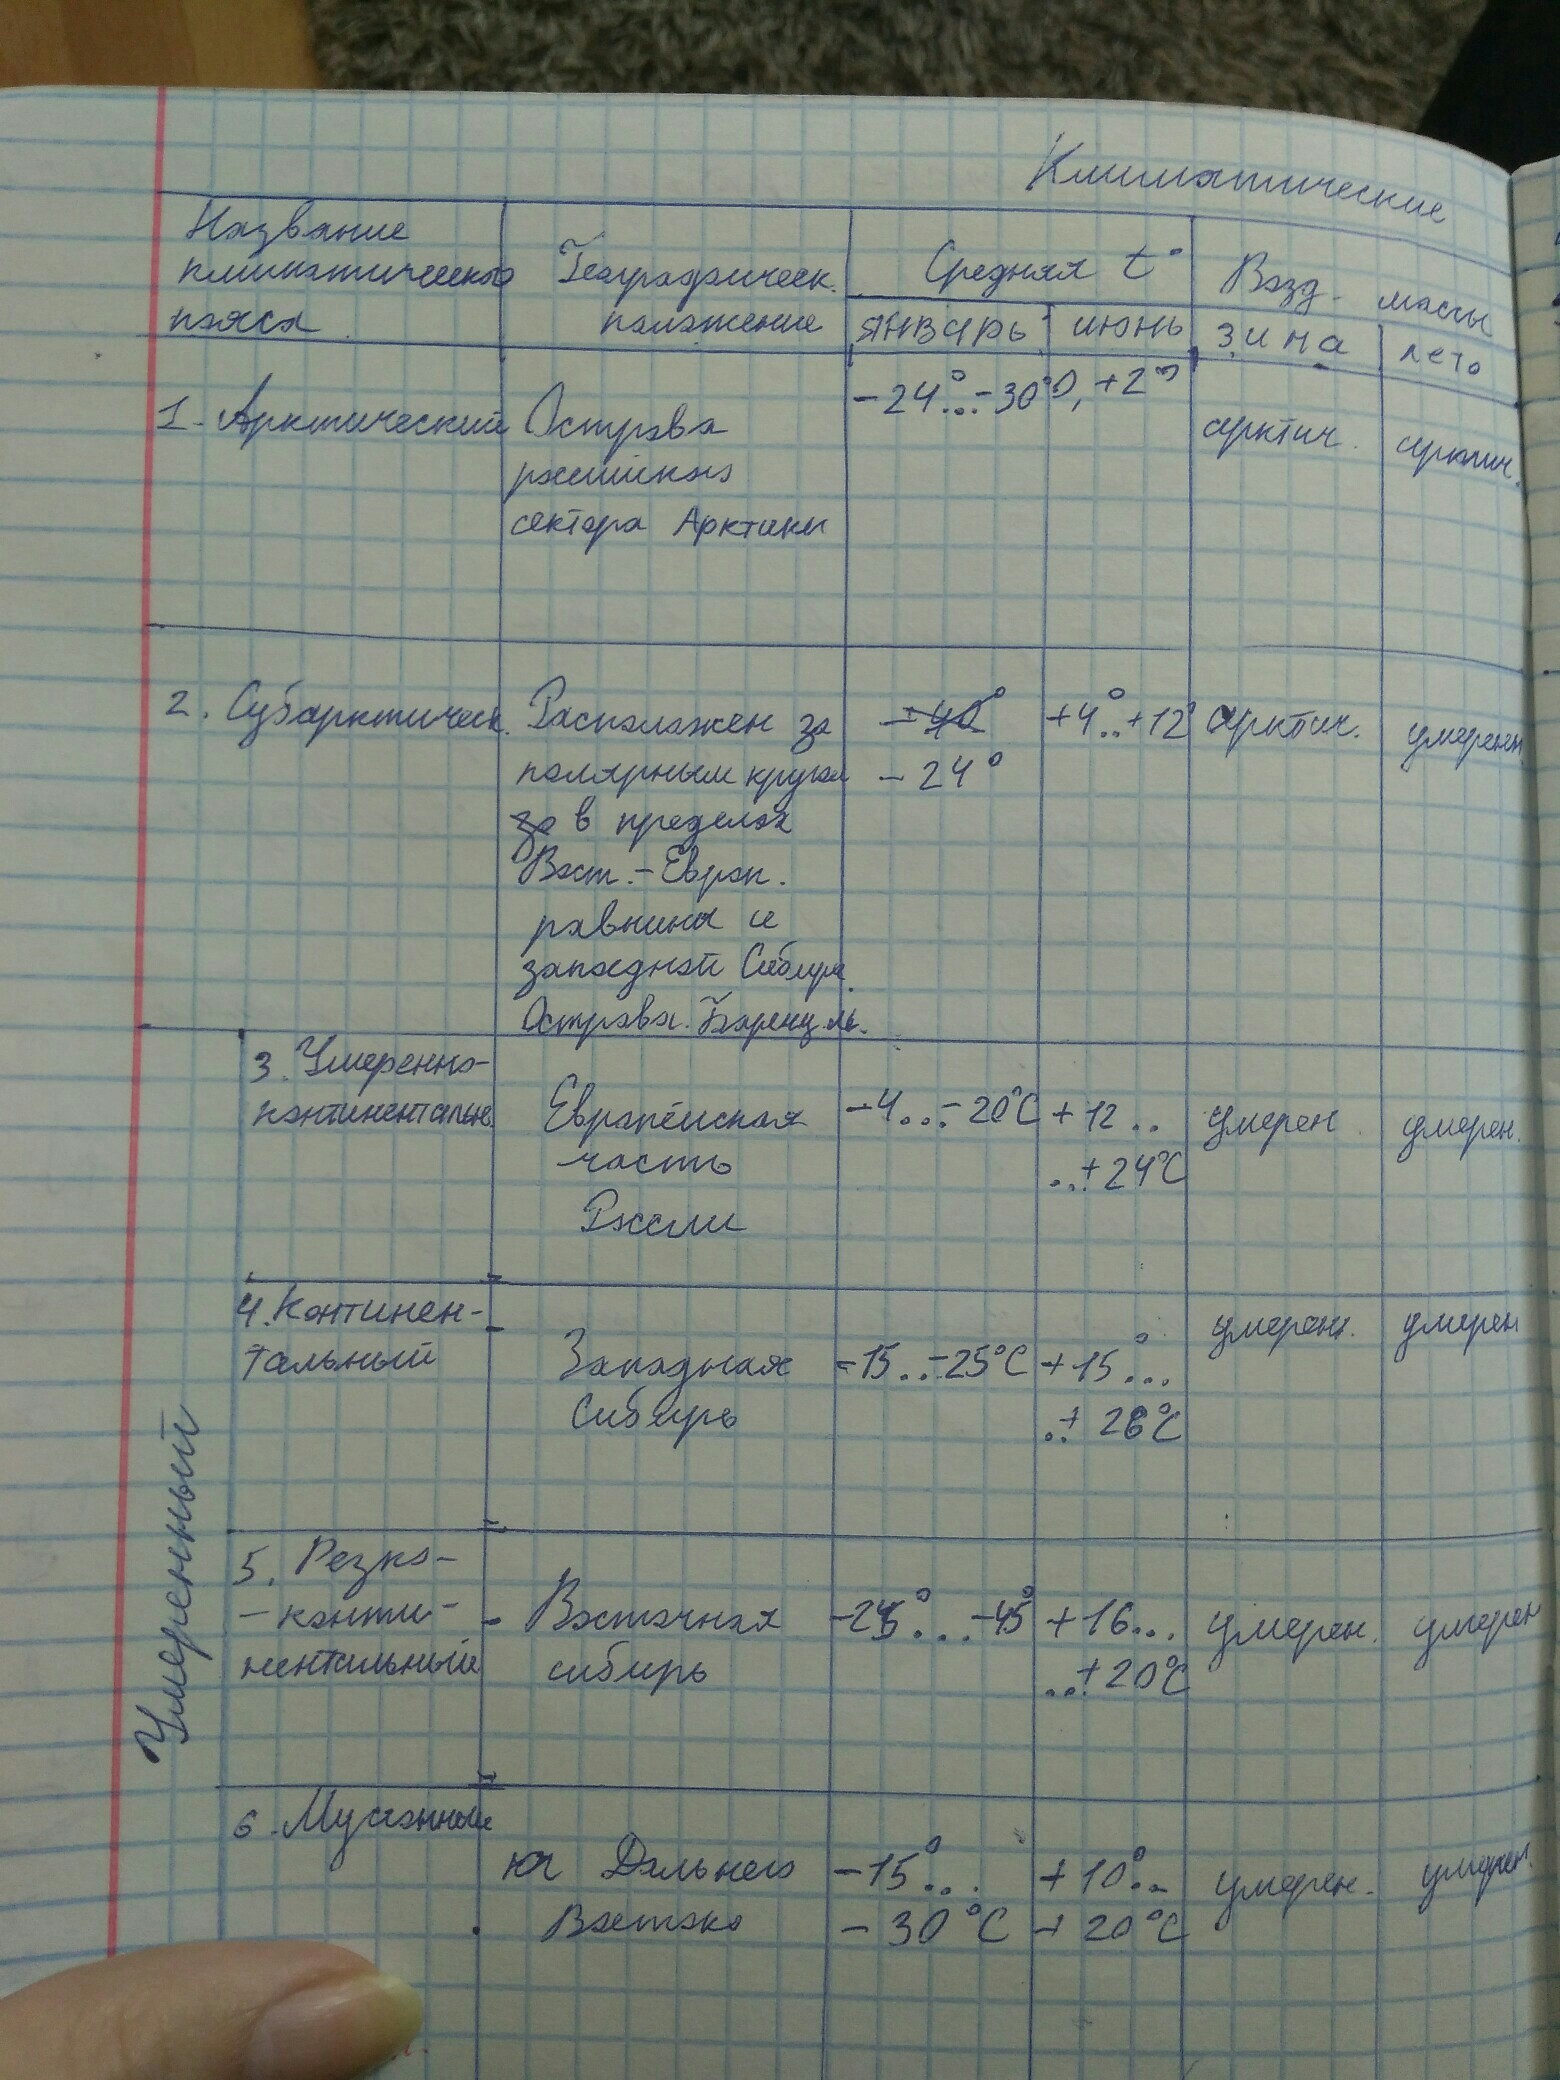 Климатические
Название климатического пояса
Географическ. положение
Средняя t°
Возд. массы
январь
июнь
зима
лето
1. Арктический
Острова
российского
сектора Арктики
-24°..-30°
0, +2°
арктич.
арктич.
2. Субарктическ.
Расположен за
полярным кругом
в пределах
Вост.-Европ.
равнина и
западной Сибири.
Острова. Баренц. м.
-40°
-24°
+4°..+12°
арктич.
умеренн.
Умеренный
3. Умеренно-
континентальн.
Европейская
часть
России
-4...-20°С
+12..
..+24°С
умерен.
умерен.
4. Континен-
тальный
Западная
Сибирь
-15..-25°С
+15°...
..+26°С
умеренн.
умерен
5. Резко-
- конти-
нентальный
- Восточная
сибирь
-25°...-45°
+16...
..+20°С
умерен.
умерен
6. Муссонный
юг Дальнего
Востока
-15°...
-30°С
+10°..
+20°С
умерен.
умерен.